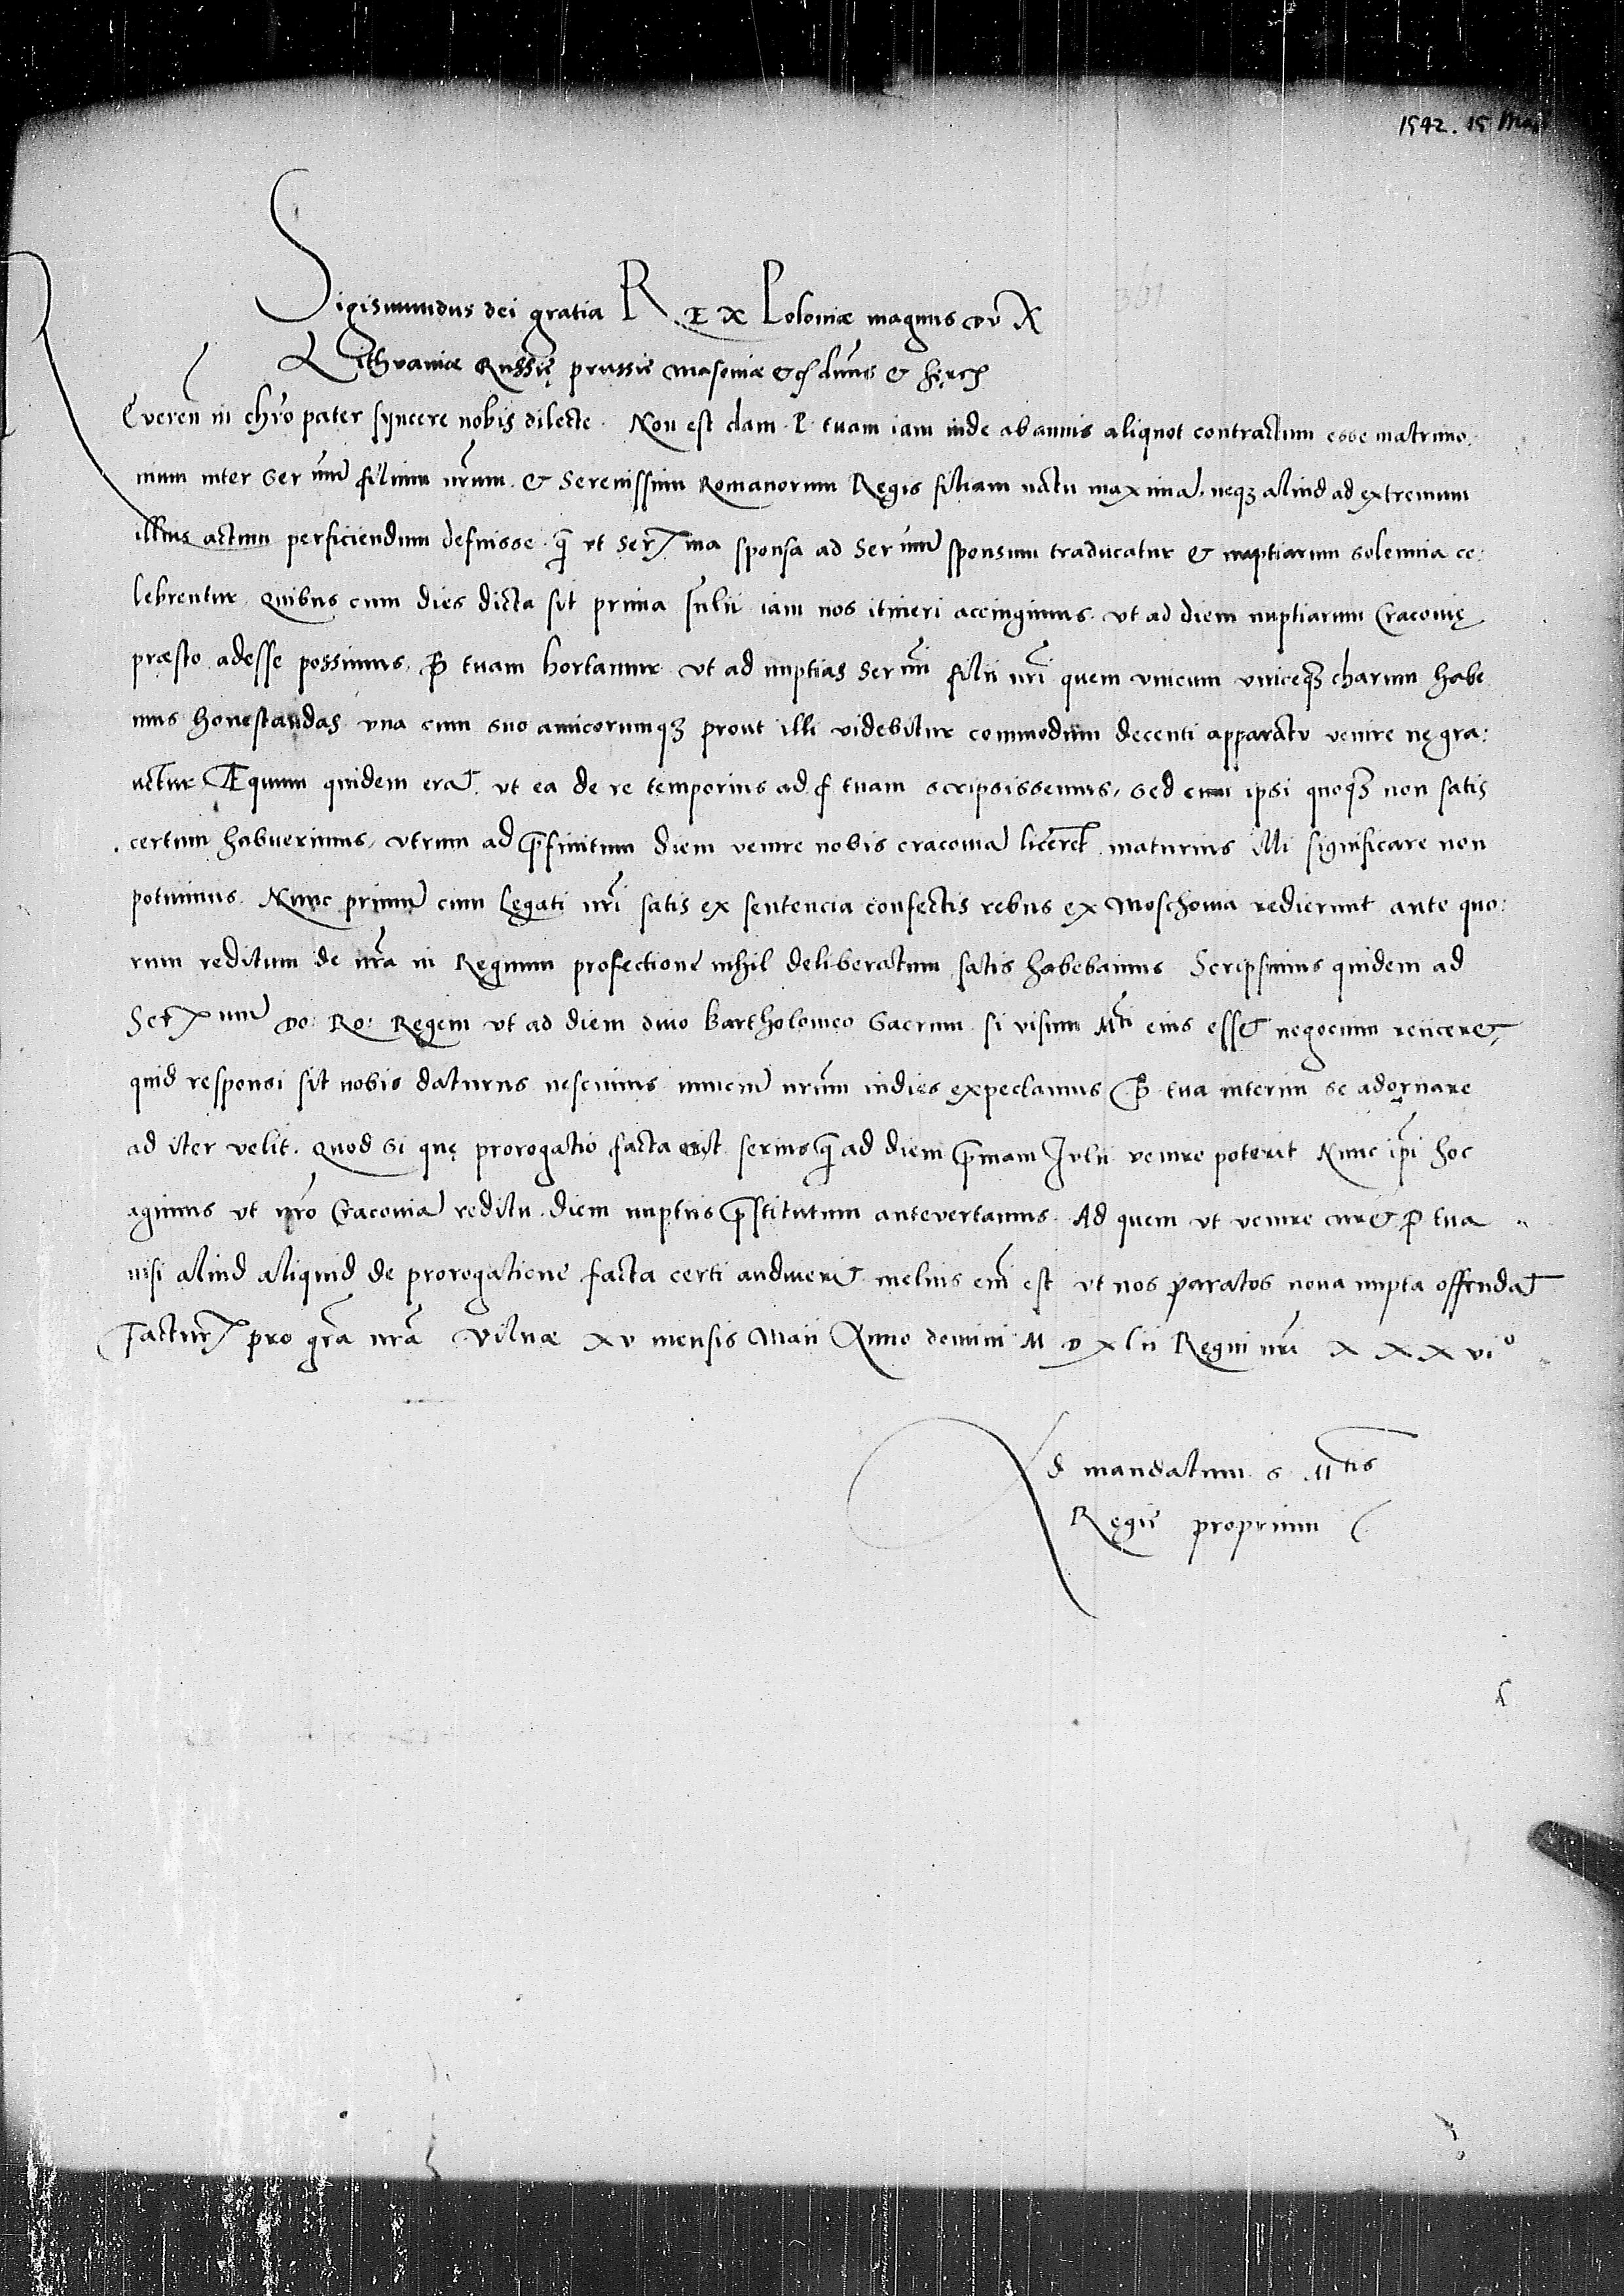 1542. 15 Mai
361
Sigismundus dei gratia REX Poloniæ magnus duX
Lithvaniæ Russię prussie Masoviæ etc dnus & hęres
Reveren in chro pater syncere nobis dilecte. Non est clam P. tuam iam inde ab annis aliquot contractum esse matrimo:
nium inter Ser mum filium nrum. & Serenissimi Romanorum Regis filiam natu maximā. neq3 aliud ad extremum
illius actum perficiendum defuisse. q̄ ut Ser ma sponsa ad Ser mum sponsum traducatur & nuptiarum solemnia ce:
lebrentur. Quibus cum dies dicta sit prima Iulii iam nos itineri accingimus. ut ad diem nuptiarum Cracovię
præsto adesse possimus. P tuam hortamur ut ad nuptias Ser mi filii nri quem unicum uniceq3 charum habe
mus honestandas una cum suo amicorumq3 prout illi videbitur commodum decenti apparatu venire ne gra:
vetur Æquum quidem erat. ut ea de re temporius ad P tuam scripsissemus, sed cum ipsi quoq3 non satis
certum habuerimus, utrum ad p̄finitum diem venire nobis cracoviā liceret maturius illi significare non
potuimus. Nunc primū cum Legati nri satis ex sentencia confectis rebus ex Moschovia redierunt ante quo:
rum reditum de nra in Regnum profectione nihil deliberatum satis habebamus Scripsimus quidem ad
Ser mū Do: Ro: Regem ut ad diem divo Bartholomeo Sacrum si visum Mti eius esset negocium reiiceret,
quid responsi sit nobis daturus nescimus nunciū nrum indies expectamus P tua interim se adornare
ad iter velit. Quod si quę prorogatio facta erit serius q̄ ad diem p̄mam Iulii venire poterit Nunc ipi hoc
agimus ut nro Cracoviā reditu diem nuptiis p̄stitutum antevertamus. Ad quem ut venire curet P tua
nisi aliud aliquid de prorogatione facta certi audiverit melius eni est ut nos paratos nova nupta offendat
Factur pro gra nra Vilnæ xv mensis Maii Anno domini M D xlii Regni nri X X X vi°
Ad mandatum S Mtis
Regię proprium